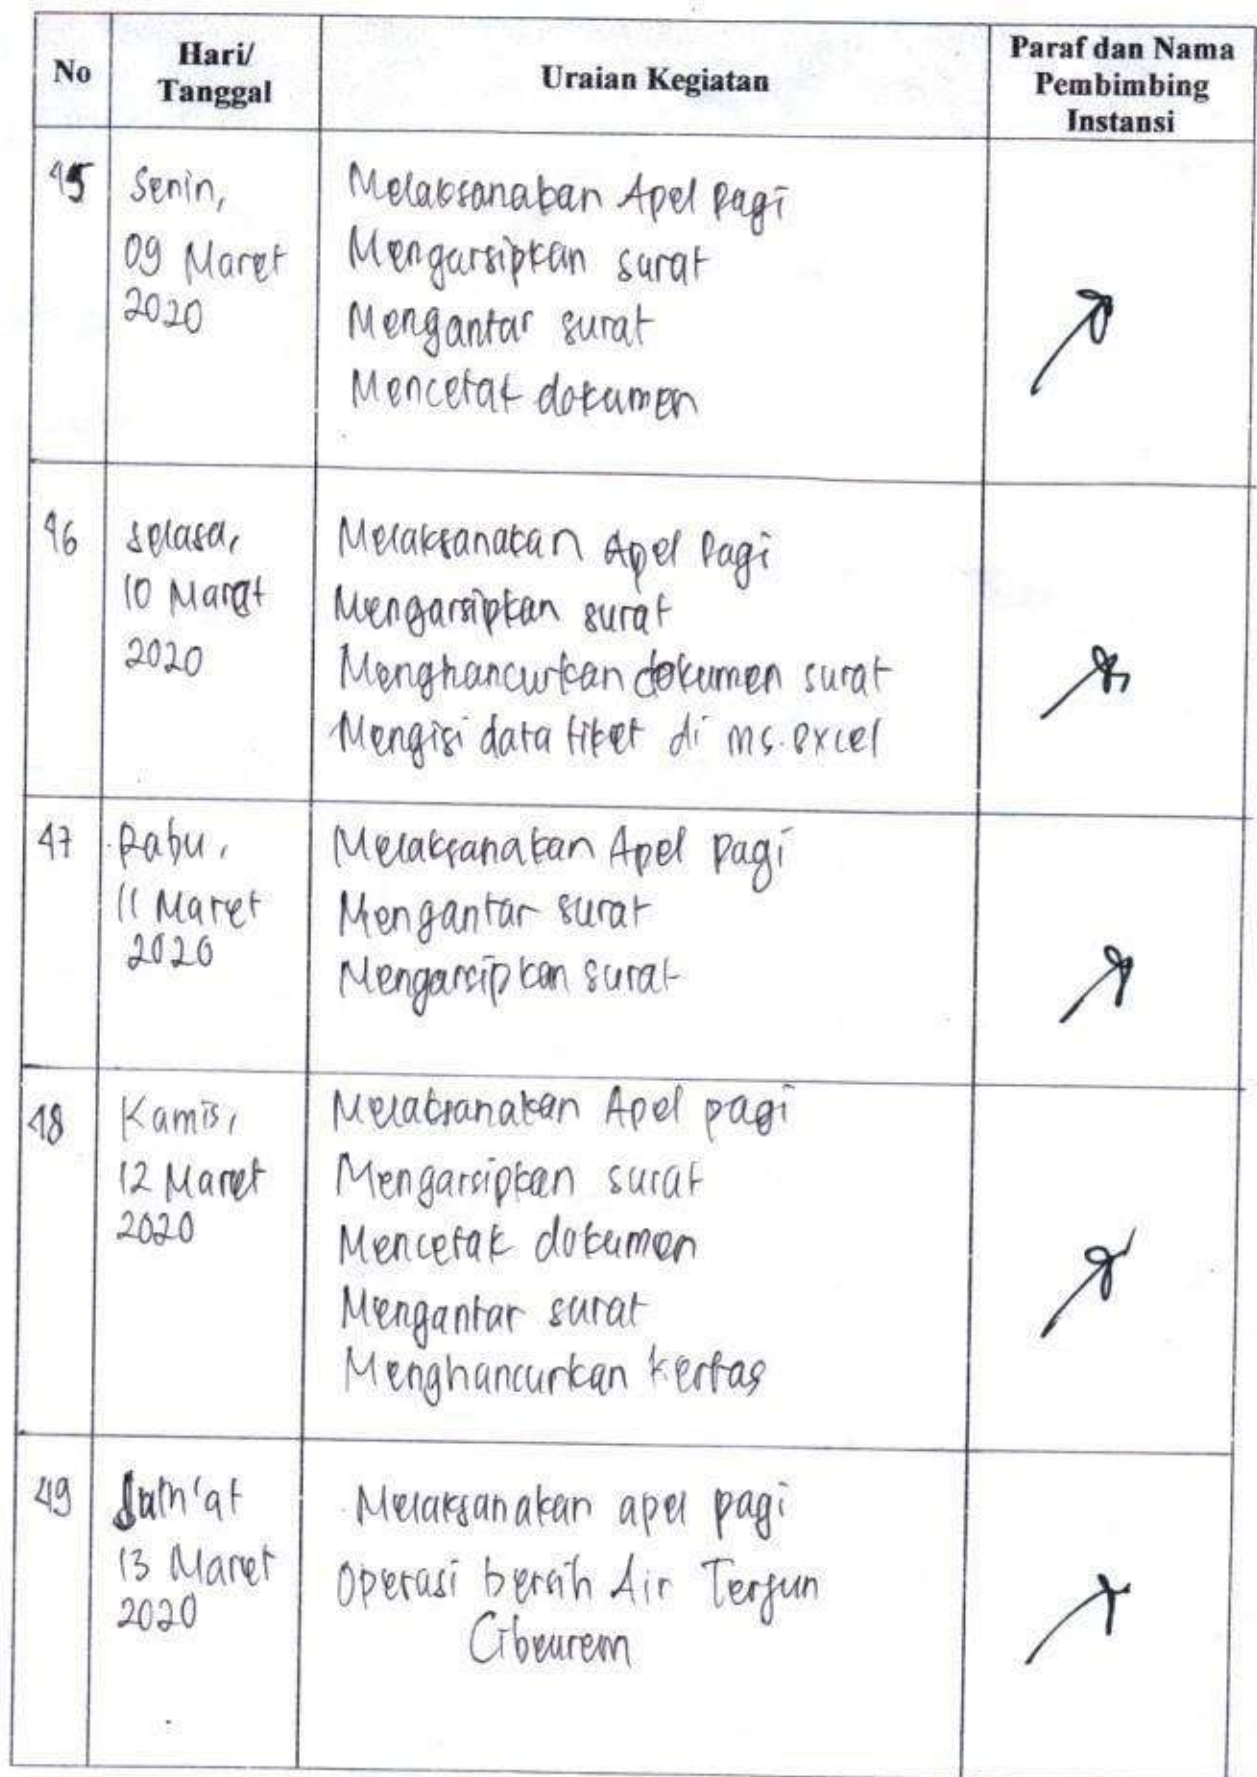 No
Hari/
Tanggal
Uraian Kegiatan
Paraf dan Nama
Pembimbing
Instansi
45
Senin,
09 Maret
2020
Melaksanakan Apel Pagi
Mengarsipkan surat
Mengantar surat
Mencetak dokumen
46
Selasa,
10 Maret
2020
Melaksanakan Apel Pagi
Mengarsipkan surat
Menghancurkan dokumen surat
Mengisi data tiket di ms.excel
47
Rabu,
11 Maret
2020
Melaksanakan Apel pagi
Mengantar surat
Mengarsipkan surat
48
Kamis,
12 Maret
2020
Melaksanakan Apel pagi
Mengarsipkan surat
Mencetak dokumen
Mengantar surat
Menghancurkan kertas
49
Jum'at
13 Maret
2020
Melaksanakan apel pagi
Operasi bersih Air Terjun
Cibeurem